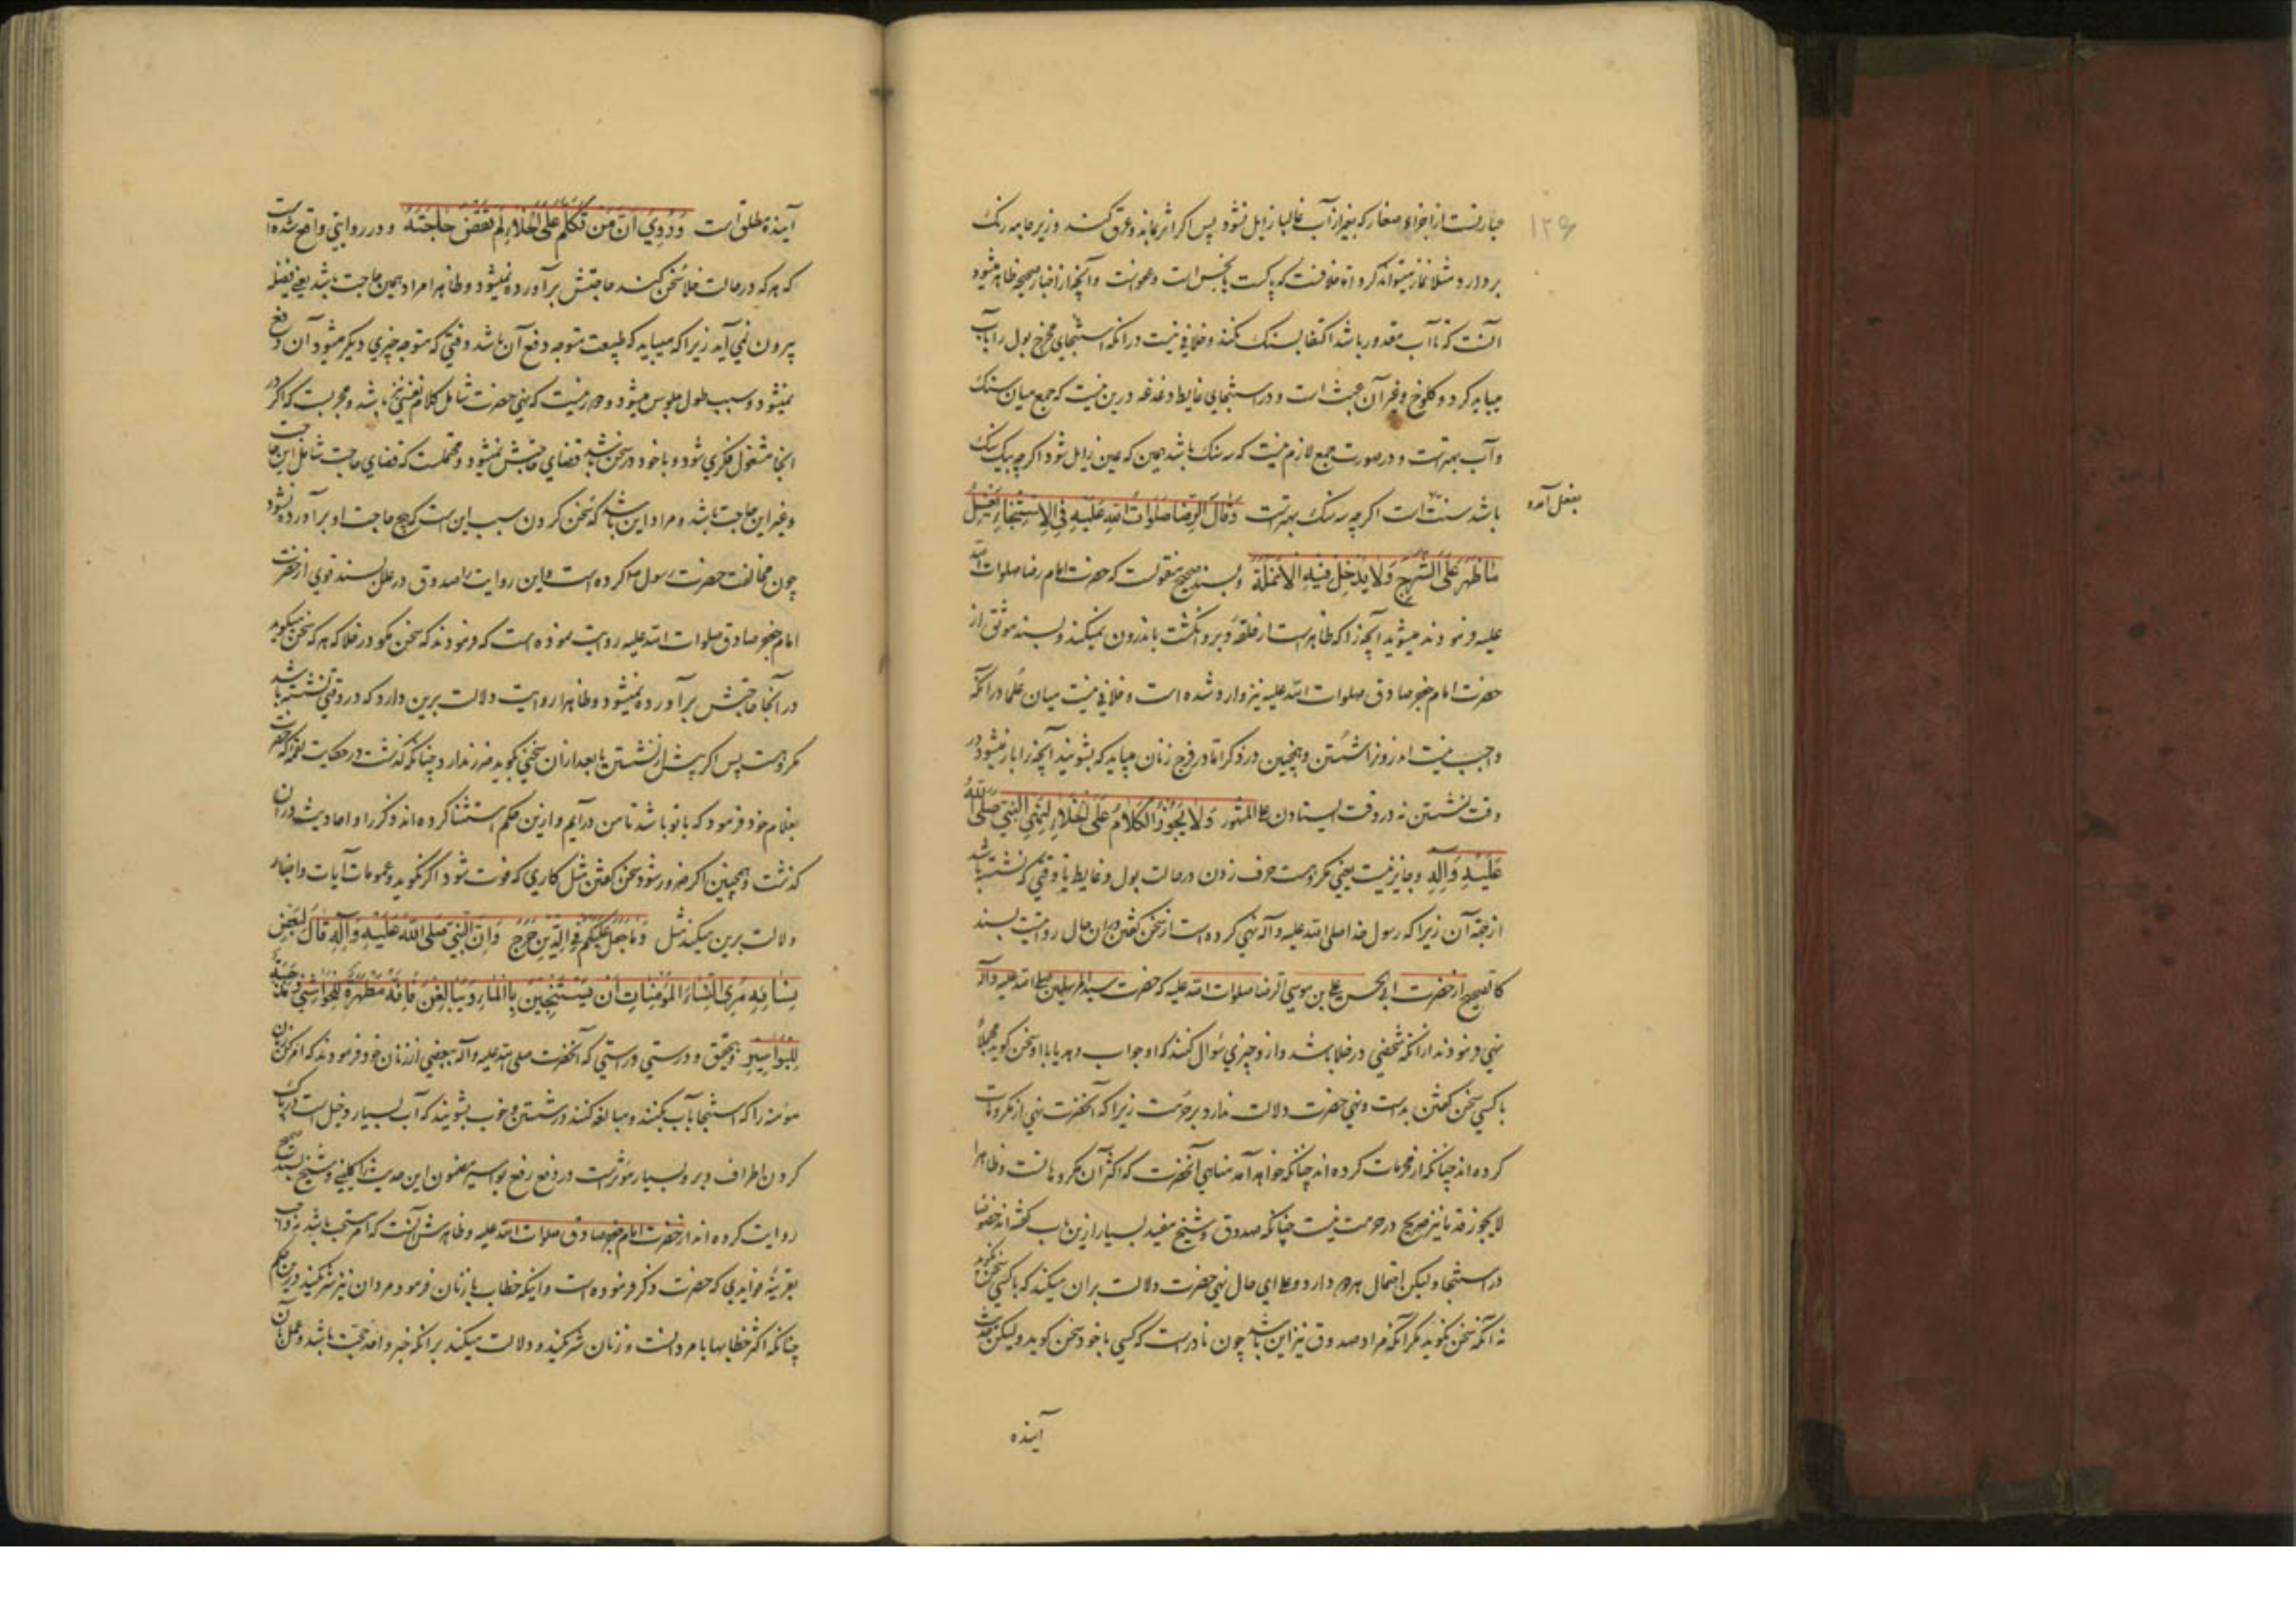 ۱۲۶
عبارتست از اجزاء صغار که بغیر از آب غالبا زایل نشود پس اگر اثر بماند و عرق کند و زیر جامه رنک
بردارد مثلا نماز میتواند کرد خلافست که پاکست یا نجس است و معفوست و آنچه از اخبار صحیحه ظاهر میشود
آنست که تا آب مقدور باشد اکتفا بسنک نکند و خلافی نیست در انکه استنجای مخرج بول را بآب
میباید کرد و کلوخ و غیر آن عبث است و در استنجای غایط دغدغه درین نیست که جمع میان سنک
و آب بهترست و در صورت جمع لازم نیست که سه سنک باشد همین که عین زایل شود اگرچه بیک سنک
باشد سنت است اگرچه سه سنک بهترست وَقالَ الرِّضا صَلَواتُ اللهِ عَلَیهِ فِی الاِستِنجاءِ یَغسِلُ
بفعل آمده
ما ظَهَرَ عَلَی الشَّرجِ وَلا یُدخِل فیهِ الاَنمُلَةَ و بسند صحیح منقولست که حضرت امام رضا صلوات الله
علیه فرمودند میشوید آنچه را که ظاهرست از حلقه دبر و انکشت باندرون نمیکند و بسند موثق از
حضرت امام جعفر صادق صلوات الله علیه نیز وارد شده است و خلافی نیست میان علما در انکه
واجب نیست اندرون را شستن و همچنین در ذکر اما در فرج زنان میباید که بشویند آنچه را باز میشود در
وقت نشستن نه در وقت ایستادن علی المشهور وَلا یَجُوزُ الکَلامُ عَلَی الخَلاءِ لِنَهیِ النَّبِیِّ صَلَّی اللهُ
عَلَیهِ وَآلِهِ و جایز نیست یعنی مکروهست حرف زدن در حالت بول و غایط یا وقتی که نشسته باشد
از جهة آن زیرا که رسول خدا صلی الله علیه و آله نهی کرده است از سخن کفتن در ان حال روایتست بسند
کالصحیح از حضرت ابی الحسن علی بن موسی الرضا صلوات الله علیه که حضرت سید المرسلین صلی الله علیه و آله
نهی فرمودند از انکه شخصی در خلا باشد و از و چیزی سؤال کنند که او جواب دهد یا با او سخن کوید مجملاً
با کسی سخن کفتن بدست و نهی حضرت دلالت ندارد بر حرمت زیرا که آنحضرت نهی از مکروهات
کرده اند چنانکه از محرمات کرده اند چنانکه خواهد آمد مناهی آنحضرت که اکثر آن مکروهاتست و ظاهرا
لا یجوز قدما نیز صریح در حرمت نیست چنانکه صدوق و شیخ مفید بسیار ازین باب کفته اند خصوصا
در استنجا و لیکن احتمال هر دو دارد و علی ای حال نهی حضرت دلالت بر ان میکند که با کسی سخن نکوید
نه آنکه سخن نکوید مکر آنکه مراد صدوق نیز این باشد چون نادرست که کسی با خود سخن کوید و لیکن حدیث
آینده
آینده مطلق است وَرُوِیَ اَنَّ مَن تَکَلَّمَ عَلَی الخَلاءِ لَم تُقضَ حاجَتُهُ و در روایتی واقع شده است
که هر که در حالت خلا سخن کند حاجتش برآورده نمیشود و ظاهرا مراد همین حاجت باشد یعنی فضله
بیرون نمی آید زیرا که میباید که طبیعت متوجه دفع آن باشد وقتی که متوجه چیزی دیگر میشود آن دفع
نمیشود و سبب طول جلوس میشود و دور نیست که نهی حضرت شامل کلام نفسی نیز باشد و مجربست که اگر در
انجا مشغول فکری شود و با خود در سخن باشد قضای حاجتش نمیشود و محتملست که قضای حاجت شامل این حاجت
و غیر این حاجت باشد و مراد این باشد که سخن کردن سبب این است که هیچ حاجت او برآورده نشود
چون مخالفت حضرت رسول کرده است و این روایت را صدوق در علل بسند قوی از حضرت
امام جعفر صادق صلوات الله علیه روایت نموده است که فرمودند که سخن مکو در خلا که هر که سخن میکوید
در آنجا حاجتش برآورده نمیشود و ظاهرا روایت دلالت برین دارد که در وقتی نشسته باشد
مکروهست پس اگر پیش از نشستن یا بعد از ان سخنی کوید ضرر ندارد چنانکه کذشت در حکایت لقمه که حضرت
بغلام خود فرمود که با تو باشد تا من در آیم و ازین حکم استثنا کرده اند ذکر را و احادیث در ان
کذشت و همچنین اگر ضرور شود سخن کفتن مثل کاری که فوت شود اگر نکوید و عمومات آیات و اخبار
دلالت برین میکند مثل وَما جَعَلَ عَلَیکُم فِی الدِّینِ مِن حَرَجٍ وَاِنَّ النَّبِیَّ صَلَّی اللهُ عَلَیهِ وَآلِهِ قالَ لِبَعضِ
نِسائِهِ مُرِی النِّساءَ المُؤمِناتِ اَن یَستَنجینَ بِالماءِ وَیُبالِغنَ فَاِنَّهُ مَطهَرَةٌ لِلحَواشی وَمَذهَبَةٌ
لِلبَواسیرِ و بتحقیق و درستی و راستی که آنحضرت صلی الله علیه و آله ببعضی از زنان خود فرمودند که امر کن زنان
مؤمنه را که استنجا بآب بکنند و مبالغه کنند در شستن و خوب بشویند که آب بسیار دخیل است در پاک
کردن اطراف دبر و بسیار مؤثرست در دفع رفع بواسیر مضمون این حدیث را کلینی و شیخ بسند صحیح
روایت کرده اند از حضرت امام جعفر صادق صلوات الله علیه و ظاهرش آنست که امر مستحب باشد نه واجب
بقرینه فوایدی که حضرت ذکر فرموده است و اینکه خطاب با زنان فرمود مردان نیز شریکند درین حکم
چنانکه اکثر خطابها با مردانست و زنان شریکند و دلالت میکند بر انکه خبر واحد حجت باشد و عمل بآن